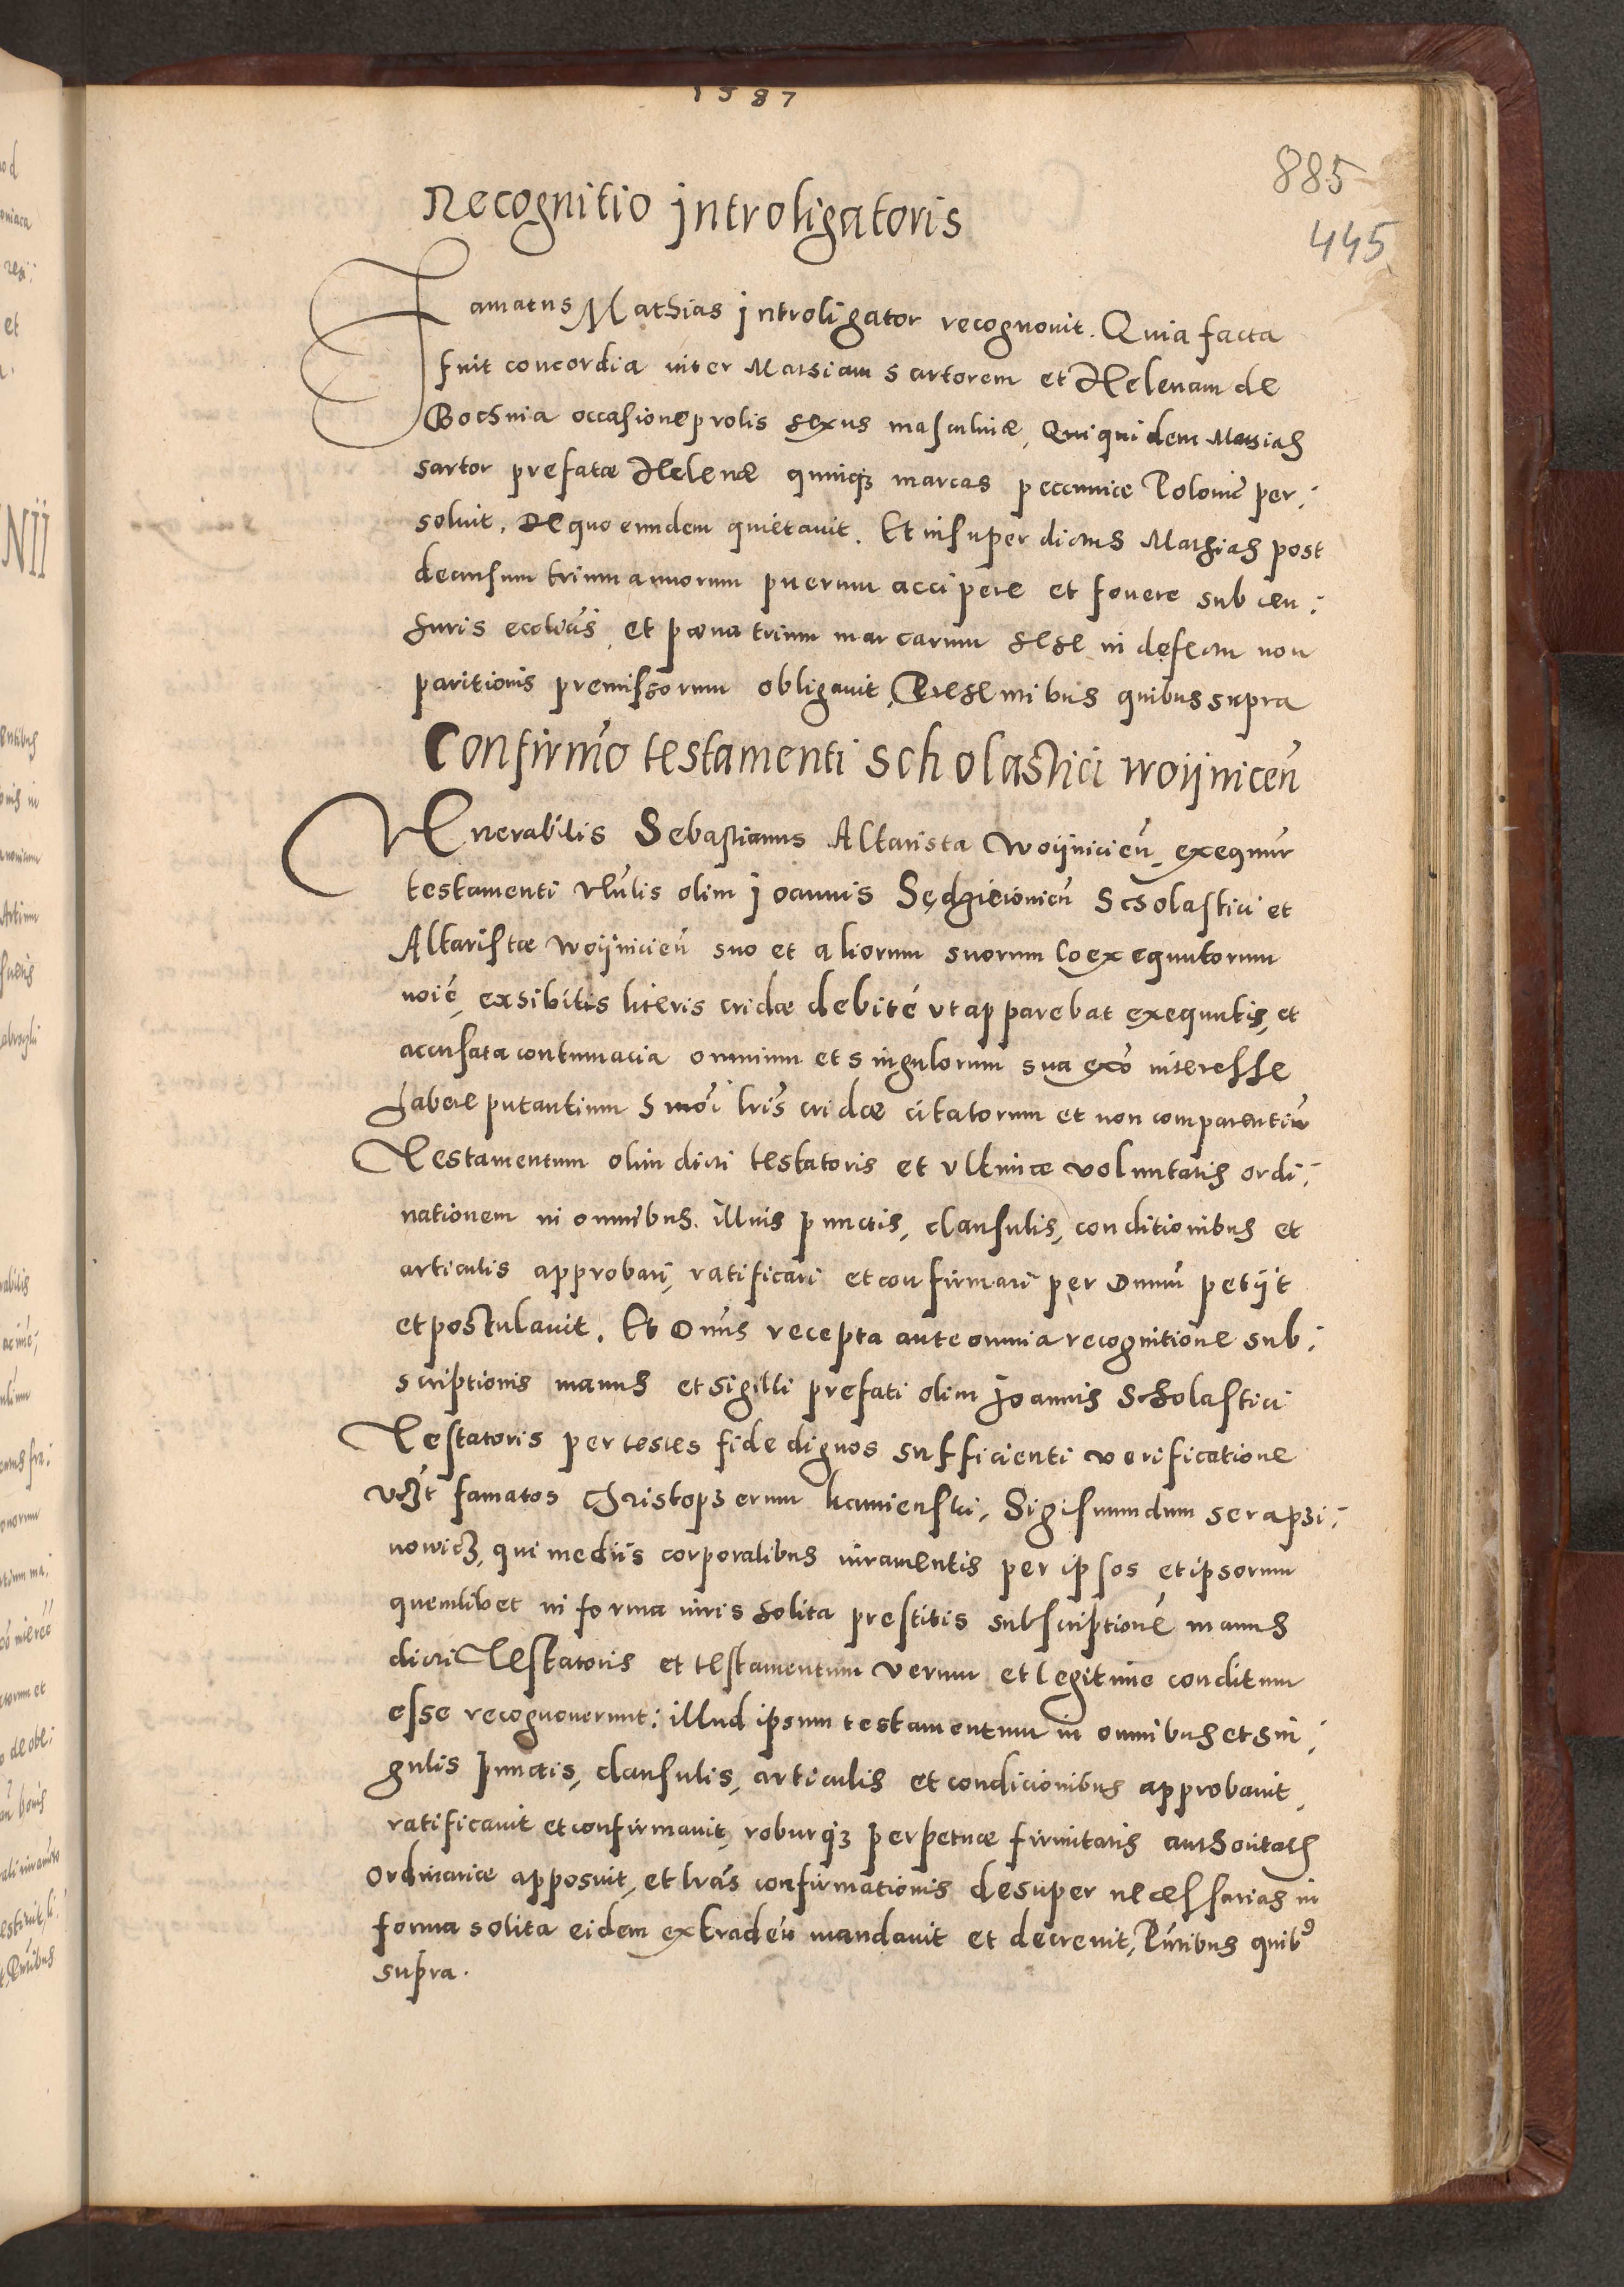 1587
885
445
Recognitio introligatoris
Famatus Mathias introligator recognouit. Quia facta
fuit concordia inter Mathiam sartorem et Helenam de
Bochnia occasione prolis sexus masculinæ, Qui quidem Mathias
sartor prefatæ Helenæ quinq3 marcas peccuniæ Polonic̄ per:
soluit. De quo eundem quietauit. Et insuper dictus Mathias post
decursum trium annorum puerum accipere et fouere sub cen:
suris ecclicis, et pœna trium marcarum sese in defectu non
paritionis premissorum obligauit, Presentibus quibus supra
Confirmo testamenti scholastici woijnicen̄
Venerabilis Sebastianus Altarista woijnicien̄, exequut̄r
testamenti olim Joannis Scholastici et
Altaristæ woijnicien̄ suo et aliorum suorum Coexequutorum
noīe, exhibitis literis cridæ debité vt apparebat exequutis, et
accusata contumacia omnium et singulorum sua exō interesse
habere putantium lrīs cridæ citatorum et non comparentiū
Testamentum olim dicti testatoris et vltimæ voluntatis ordi:
nationem in omnibus illius punctis, clausulis, conditionibus et
articulis approbari, ratificari et confirmari per Dnum̄ petijt
et postulauit. Et Dnūs recepta ante omnia recognitione sub:
scriptionis manus et sigilli prefati olim Joannis Scholastici
Testatoris per testes fide dignos sufficienti verificatione
vz̄t famatos Christopherum kamienski, Sigismundum seraphi:
nowicz, qui mediis corporalibus iuramentis per ipsos et ipsorum
quemlibet in forma iuris solita prestitis subscriptionē manus
dicti Testatoris et testamentum verum et legitime conditum
esse recognouerunt: illud ipsum testamentum in omnibus et sin:
gulis punctis, clausulis, articulis et condicionibus approbauit,
ratificauit et confirmauit, roburq3 perpetuæ firmitatis authoritatis
Ordinariæ apposuit, et lrās confirmationis desuper necessarias in
forma solita eidem extraden̄ mandauit et decreuit, Pn̄tibus quib9
supra.